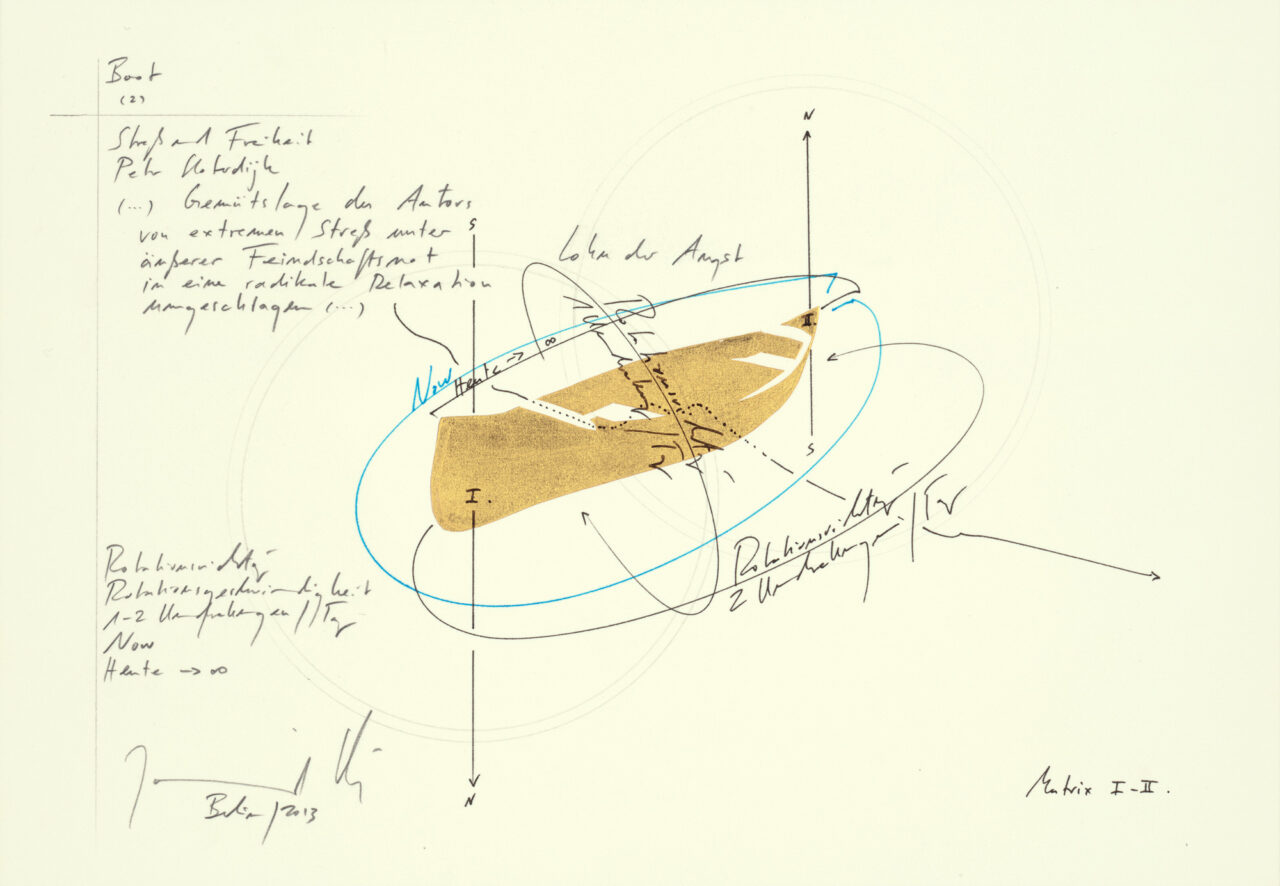 Boot
(2)
Streß und Freiheit
Peter Sloterdijk
(...) Gemütslage des Autors
von extremen Streß unter
äußerer Feindschaftsnot
in eine radikale Relaxation
umgeschlagen (...)
N
S
Lohn der Angst
II
Now
Heute → ∞
S
I.
Rotationsrichtg
2 Umdrehungen//Tag
Rotationsrichtg
Rotationsgeschwindigkeit
1-2 Umdrehungen//Tag
Now
Heute → ∞
N
Berlin/2013
Matrix I-II.